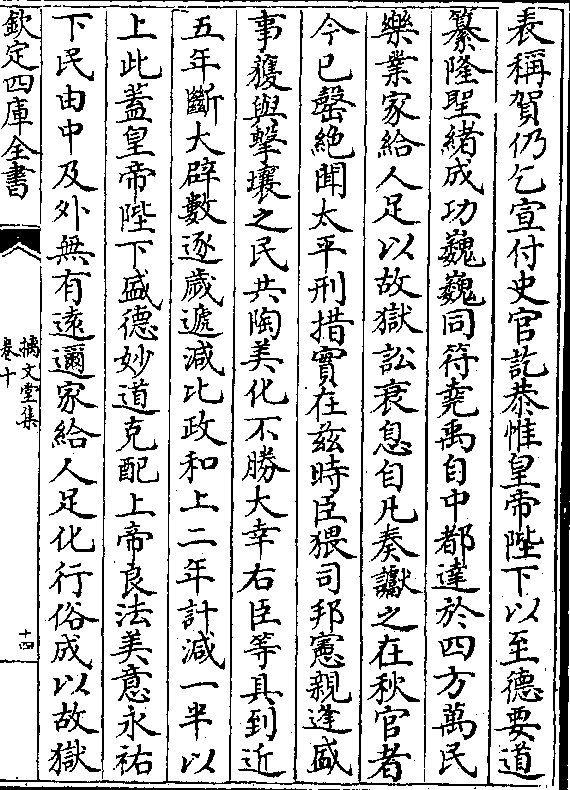 表稱賀仍乞宣付史官訖恭惟皇帝陛下以至德要道
纂隆聖緒成功巍巍同符堯禹自中都達於四方萬民
樂業家給人足以故獄訟衰息自凡奏讞之在秋官者
今已罄絶聞太平刑措實在兹時臣猥司邦憲親逢盛
事獲與擊壤之民共陶美化不勝大幸右臣等具到近
五年斷大辟數逐歲遞減比政和上二年計減一半以
上此蓋皇帝陛下盛德妙道克配上帝良法美意永祐
下民由中及外無有逺邇家給人足化行俗成以故獄
欽定四庫全書
摛文堂集
卷十
十四